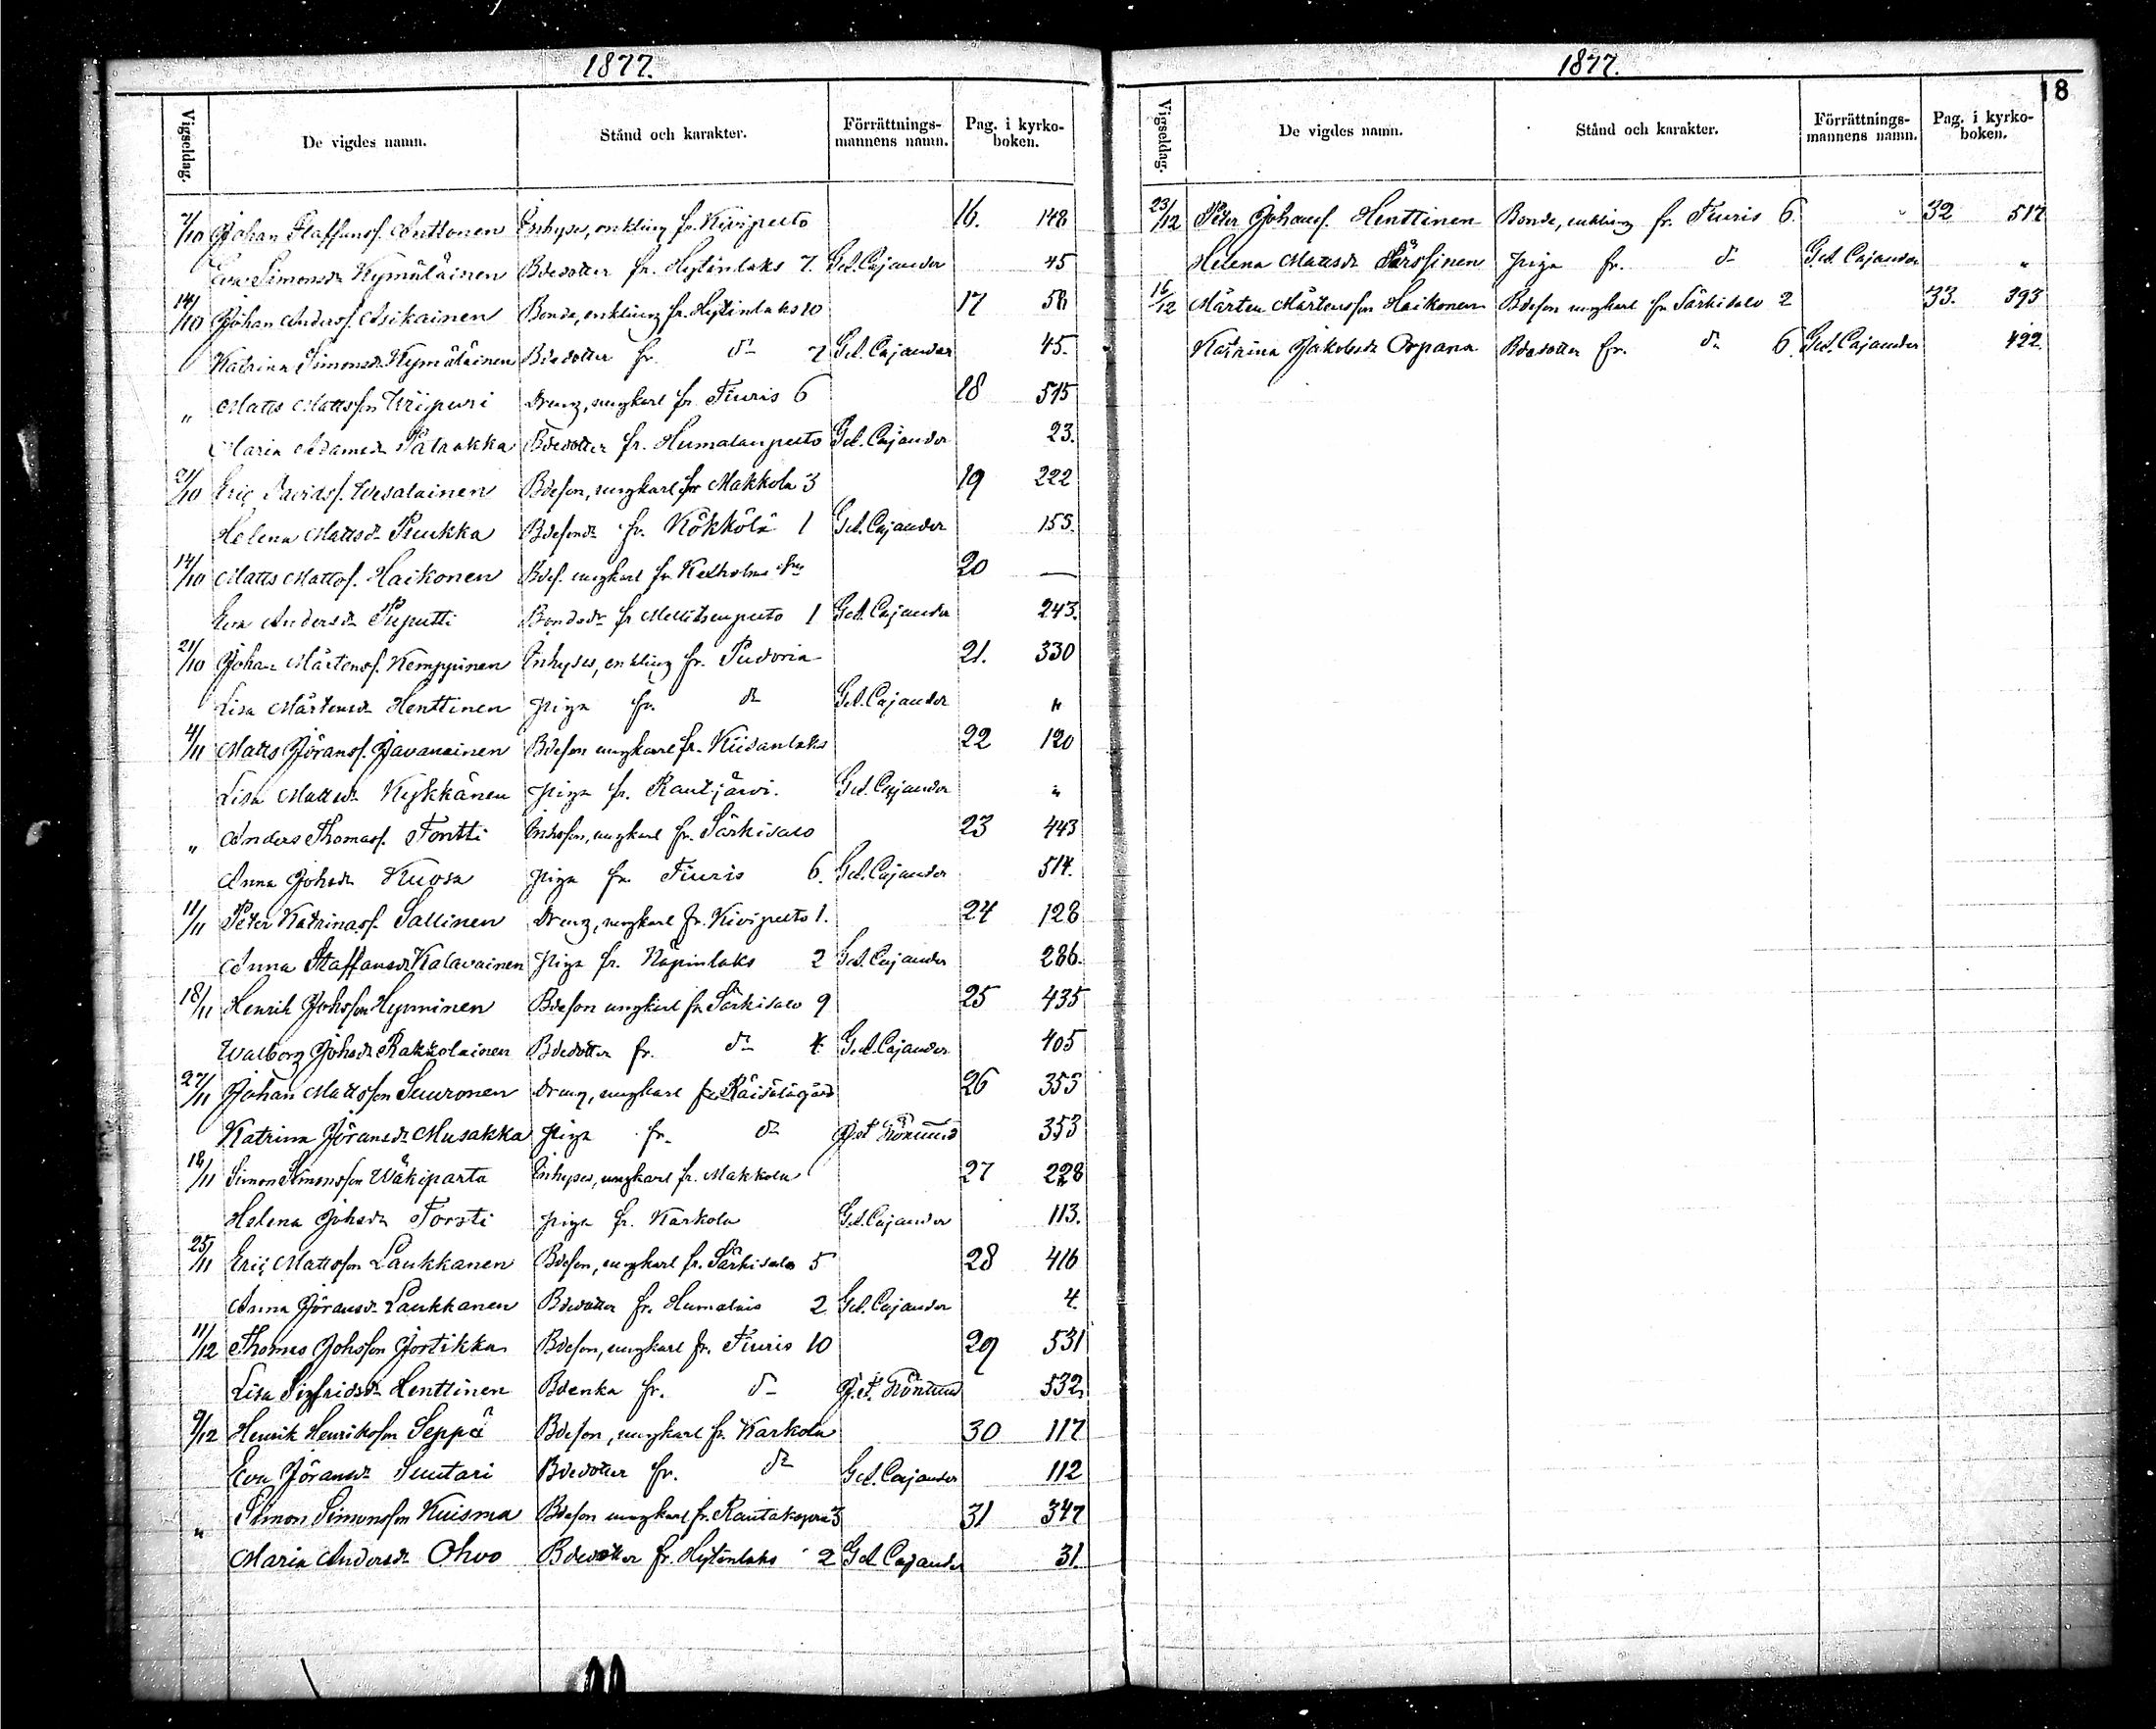 1877.
Vigseldag. De vigdes namn. Stånd och karakter. Förrättnings-mannens namn. Pag. i kyrko-boken.
7/10 Johan Staffansf. Anttonen Inhyses, enkling fr. Kiviputo 16. 148
Eva Simonsdr Kymäläinen Bdedotter fr. Hytinlaks 7. G.A. Cajander 45
14/10 Johan Andersf. Asikainen Bonde, enkling fr. Hytinlaks 10 17 58
Katrina Simonsdr Kymäläinen Bdedotter fr. do 7 G.A. Cajander 45.
" Matts Mattsson Wiipuri Dreng, ungkarl fr. Tiuris 6 18 515
Maria Adamsdr Patrakka Bdedotter fr. Humalanputo G.A. Cajander 23.
21/10 Eric Davidsf. Wesalainen Bdeson, ungkarl fr Makkola 3 19 222
Helena Mattsdr Puukka Bdesondr fr. Kökkölä 1 G.A. Cajander 155.
14/10 Matts Mattsf. Haikonen Bdes. ungkarl fr Kexholms 20 —
Eva Andersdr Puputti Bondedr fr Mellitsenputo 1 G.A. Cajander 243.
21/10 Johan Mårtensf. Kemppinen Inhyses, enkling fr. Pudoria 21. 330
Lisa Mårtensdr Henttinen piga fr. do G.A. Cajander "
4/11 Matts Jöransf. Javanainen Bdeson ungkarl fr. Kiisanlaks 22 120
Lisa Mattsdr Kykkänen piga fr. Rautjärvi. G.A. Cajander "
" Anders Thomasf. Tontti Inhson, ungkarl fr. Särkisalo 23 443
Anna Johsdr Kuosa piga fr. Tiuris 6. G.A. Cajander 514.
11/11 Peter Katrinasf. Sallinen Dreng, ungkarl fr. Kiviputo 1. 24 128
Anna Staffansdr Kalavainen piga fr. Näpinlaks 2 G.A. Cajander 286.
18/11 Henrik Johsson Hyvninen Bdeson ungkarl fr Särkisalo 9 25 435
Walborg Johsdr Rakkolainen Bdedotter fr. do 4 G.A. Cajander 405
27/11 Johan Mattsson Suuronen Dreng, ungkarl fr Räisälägård 26 353
Katrina Jöransdr Musakka piga fr. do 353
18/11 Simon Simonsson Wäkiparta Inhyses, ungkarl fr. Makkola 27 228
Helena Johsdr Torsti piga fr. Karkola G.A. Cajander 113.
25/11 Eric Mattsson Laukkanen Bdeson, ungkarl fr. Särkisalo 5 28 416
Anna Jöransdr Laukkanen Bdedotter fr. Humalais 2 G.A. Cajander 4.
11/12 Thomas Johsson Jortikka Bdeson, ungkarl fr. Tiuris 10 29 531
Lisa Sigfridsdr Henttinen Bdenka fr. do 532.
9/12 Henrik Henriksson Seppä Bdeson, ungkarl fr. Karkola 30 117
Eva Jöransdr Suutari Bdedotter fr. do G.A. Cajander 112
" Simon Simonsson Kuisma Bdeson ungkarl fr. Rautakoporra 3 31 347
Maria Andersdr Ohvo Bdedotter fr. Hytinlaks 2 G.A. Cajander 31.
1877.
18
Vigseldag. De vigdes namn. Stånd och karakter. Förrättnings-mannens namn. Pag. i kyrko-boken.
23/12 Peter Johansf. Henttinen Bonde, enkling fr. Tiuris 6. 32 517
Helena Mattsdr Pärssinen piga fr. do G.A. Cajander "
16/12 Mårten Mårtensson Haikonen Bdeson ungkarl fr Särkisalo 2 33. 393
Katrina Jakobsdr Orpana Bdedotter fr. do 6. G.A. Cajander 492.